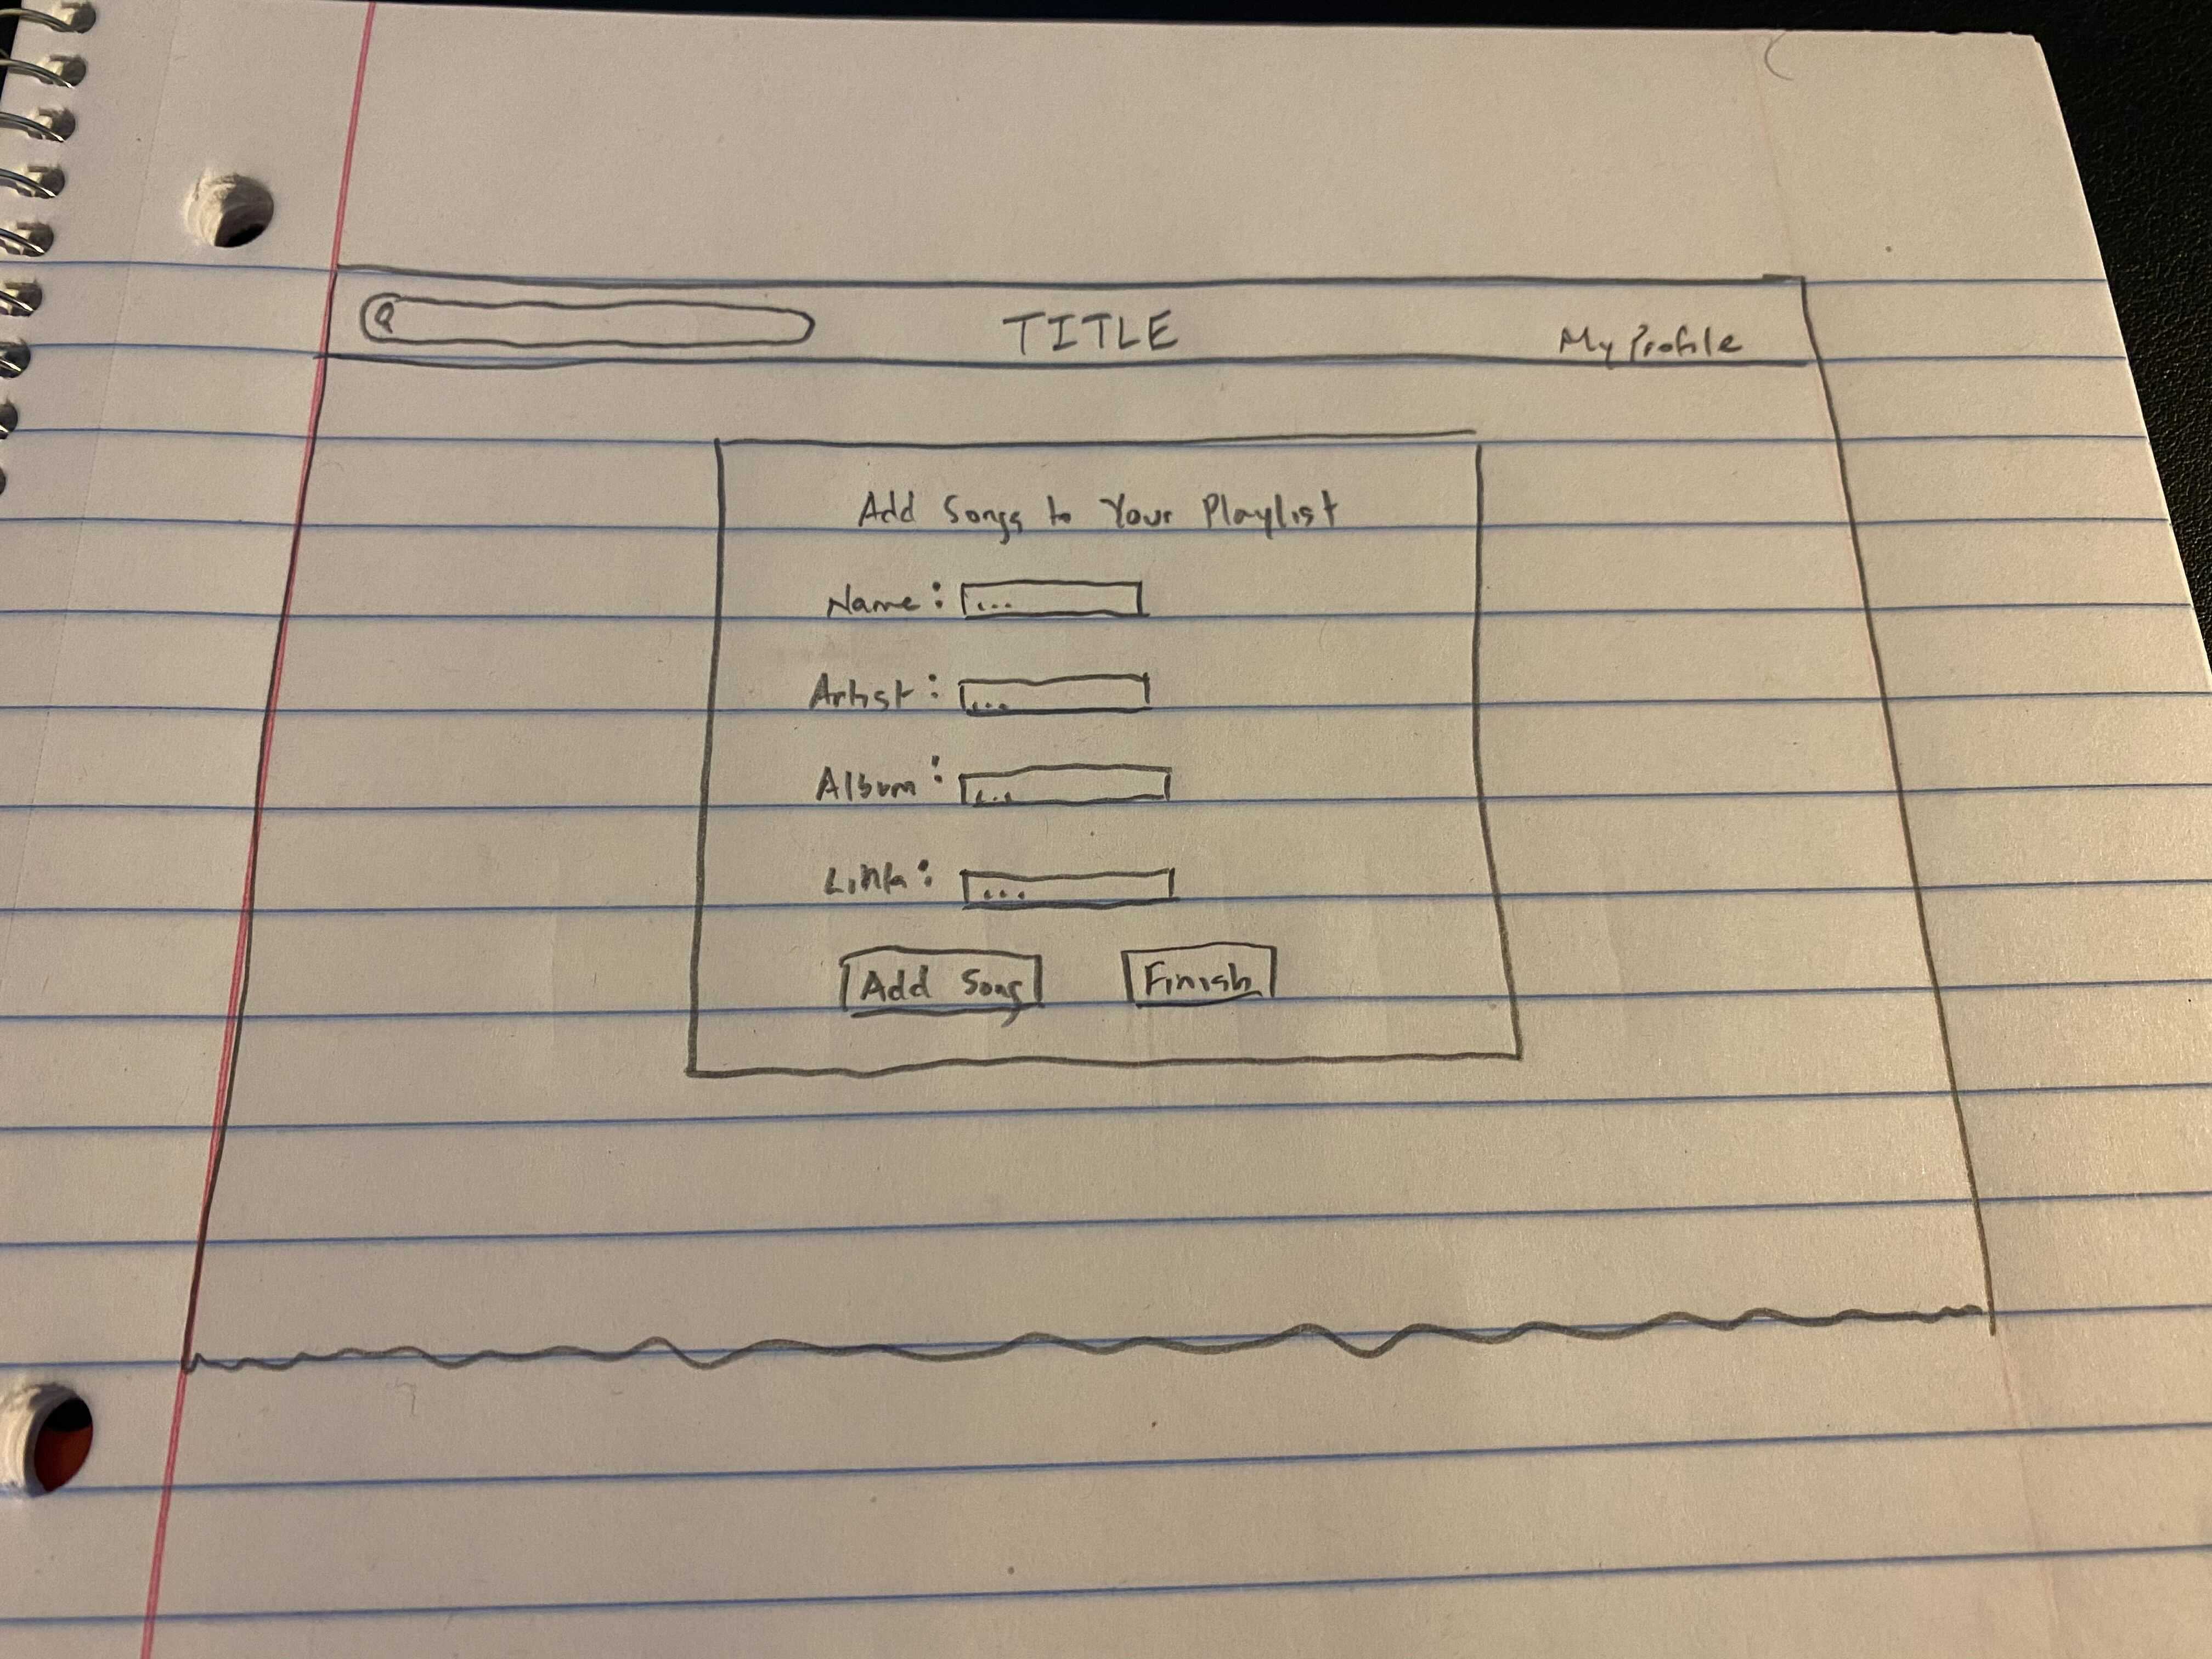 TITLE
My Profile
Add Songs to Your Playlist
Name: ...
Artist: ...
Album: ...
Link: ...
Add Song
Finish